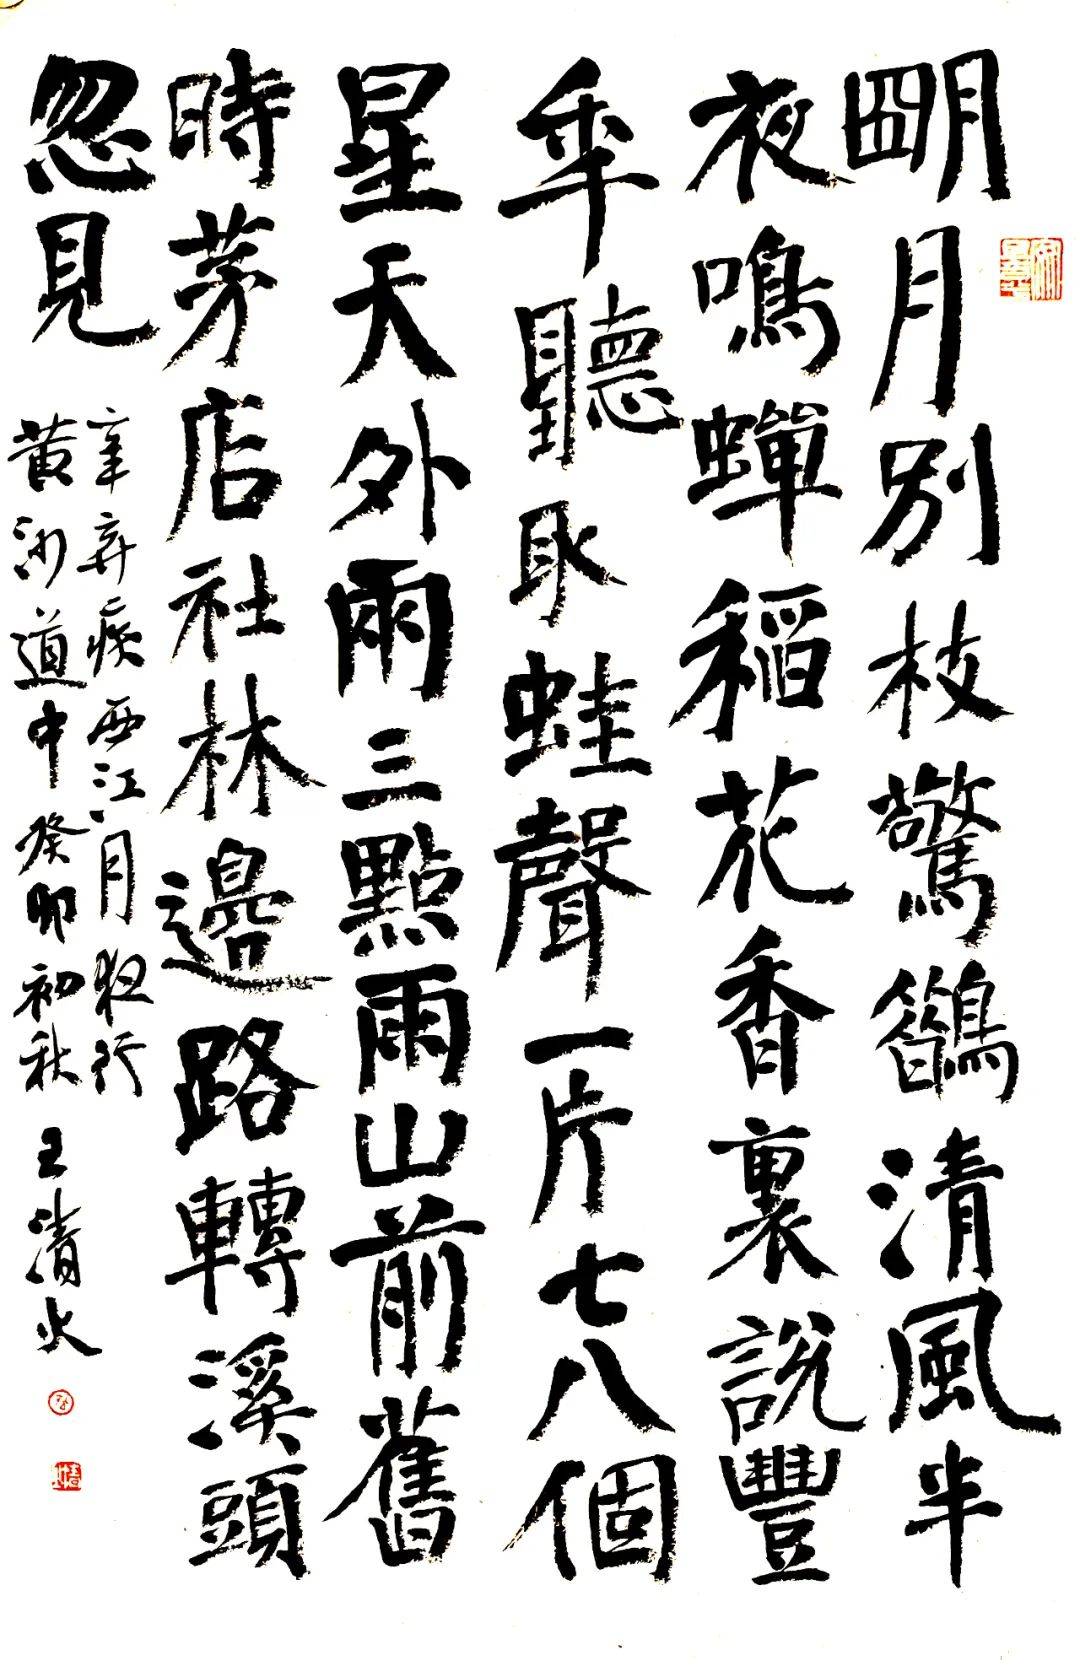 朙月別枝驚鵲清風半
夜鳴蟬稻花香裏説豐
年聽取蛙聲一片七八個
星天外兩三點雨山前舊
時茅店社林邊路轉溪頭
忽見
辛弃疾西江月夜行
黄沙道中癸卯初秋王清火